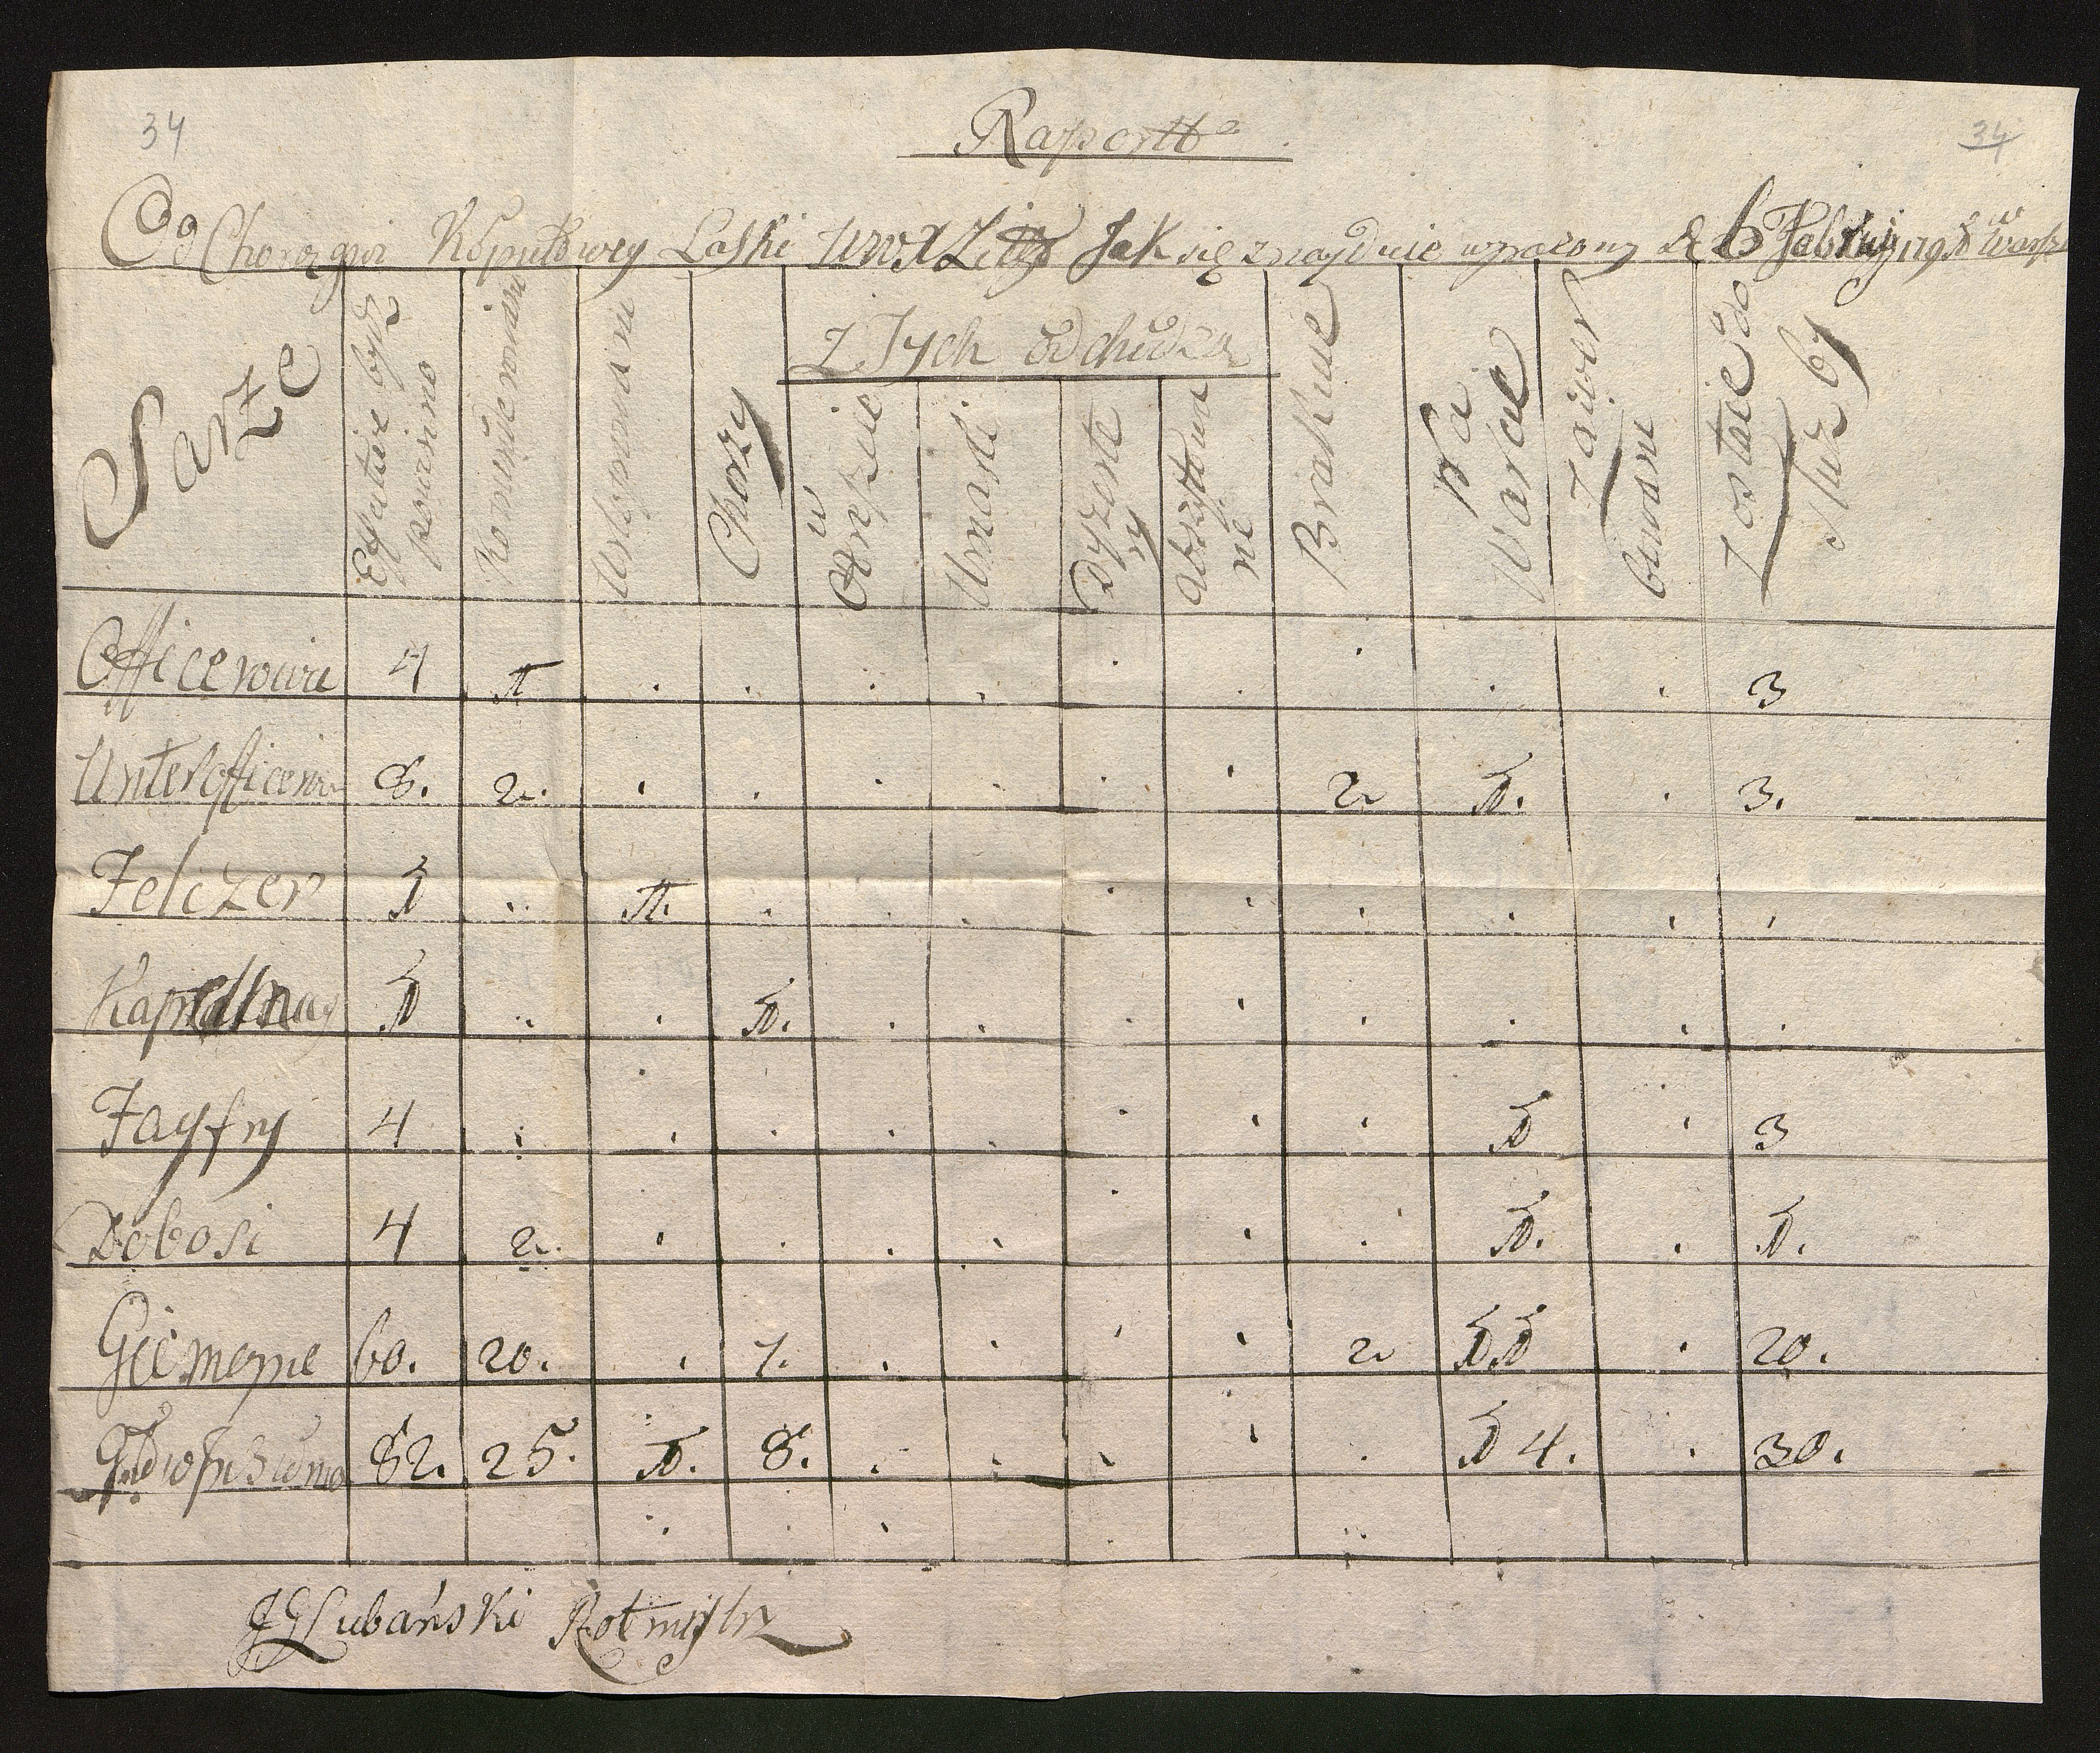 34
Raportt
34
Od Chorągwi Kóputowey Laski WWX Litt Jak się znayduie wyrazony d 6 Febru
Sarze
Effective bydz powinno
Komenderowani
Urlopowani
Chorzy
Z Tych odchodzą
w Areszcie
Umarli
Dyzertery
Abszytowani
Brakuie
Na Warcie
Zawerbowani
Zostaie do służby
Officerowie 4 1 . . . . . . . . . 3
Unterofficerow 8. 2. . . . . . . 2 1. . 3.
Felczer 1 . 1. . . . . . . . . .
1 . . 1. . . . . . . . .
Fayfry 4 . . . . . . . . 1 . 3
Dobosi 4 2. . . . . . . . 1. . 1.
Giemeyne 60. 20. . 7. . . . . 2 11 . 20.
82. 25. 1. 8. . . . . . 14. . 30.
JGLubański Rotmistrz